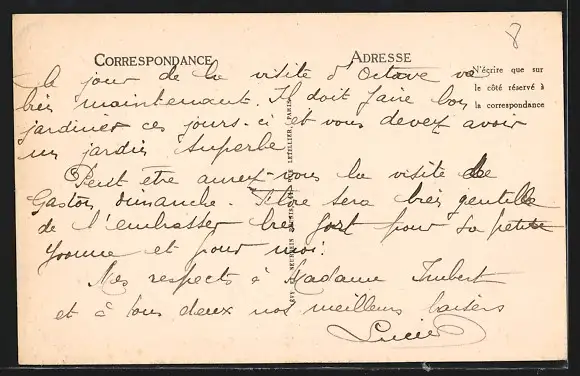 8
CORRESPONDANCE
ADRESSE
N'écrire que sur
le côté réservé à
la correspondance
le jour de la visite d'Octave va
très maintenant. Il doit faire bon
jardiner ces jours-ci et vous devez avoir
un jardin superbe
Peut être aurez-vous la visite de
Gaston dimanche. Titre sera très gentille
de l'embrasser bien fort pour sa petite
Yvonne et pour moi.
Mes respects à Madame Imbert
et à tous deux nos meilleurs baisers
Lucie
LEVY & NEURDEIN RÉUNIS, 44, RUE LETELLIER, PARIS